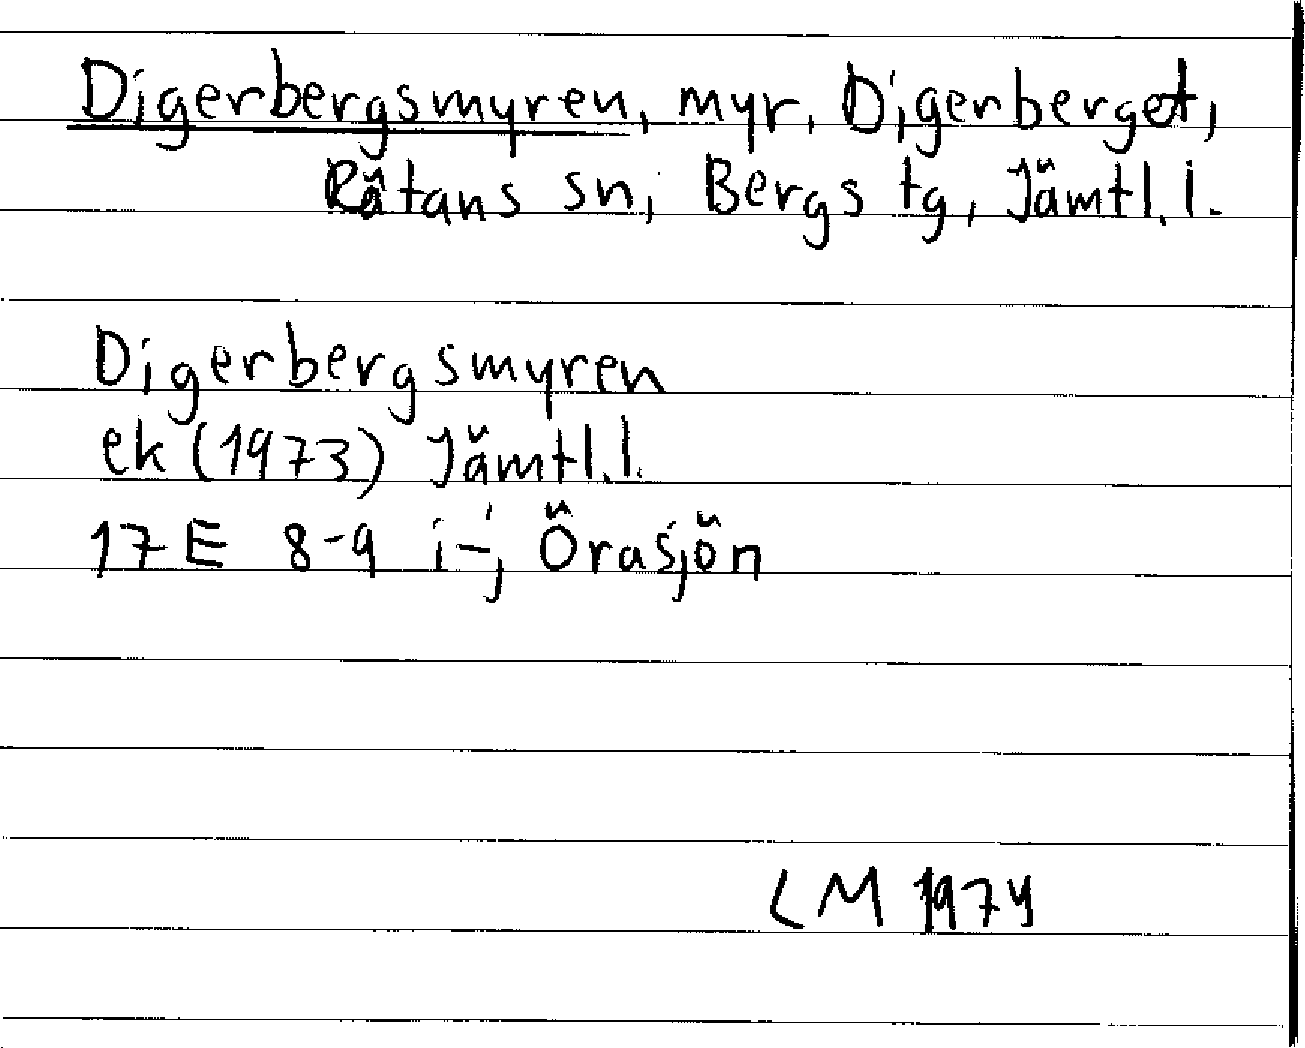 Digerbergsmyren, myr, Digerberget,
Rätans sn, Bergs tg, Jämtl. l.
Digerbergsmyren
ek (1973) Jämtl. l.
17E 8-9 i-j Örasjön
LM 1974